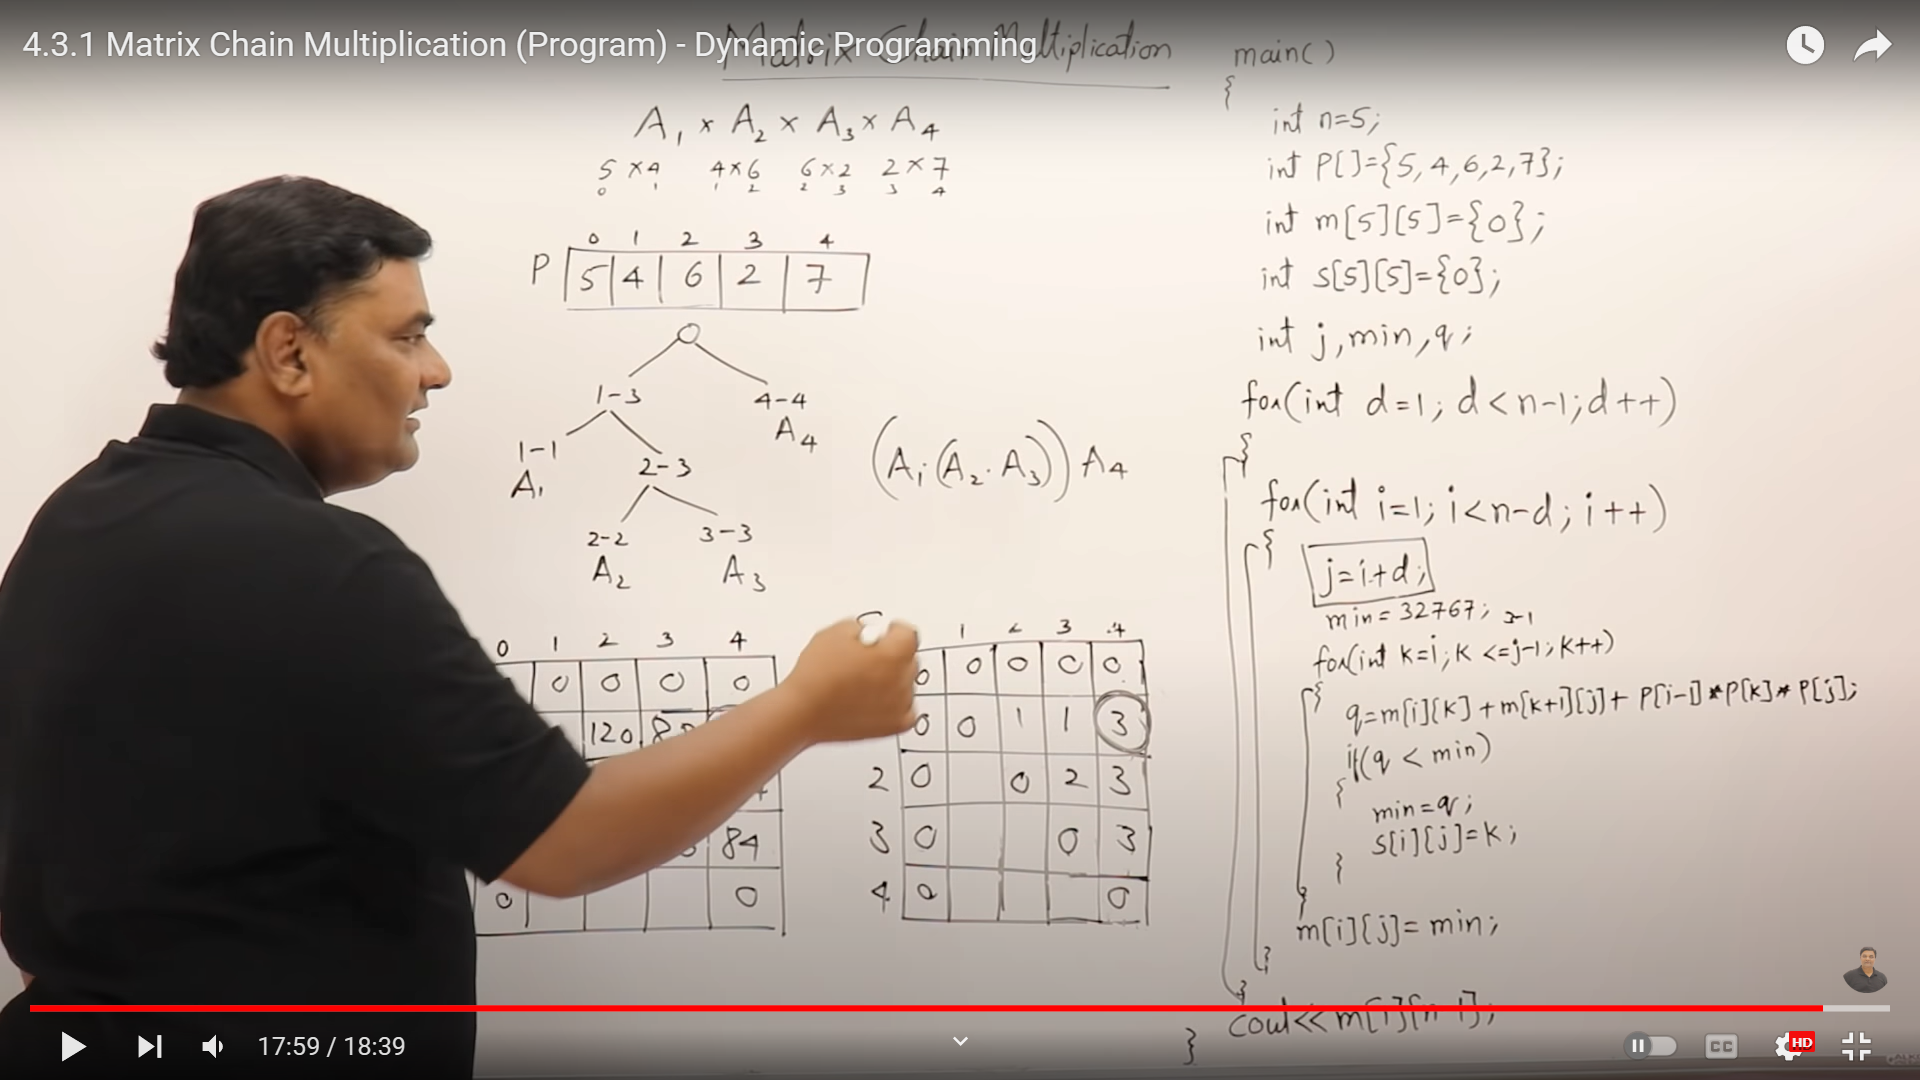 4.3.1 Matrix Chain Multiplication (Program) - Dynamic Programming
Matrix Chain Multiplication
A1 × A2 × A3 × A4
5 × 4 4 × 6 6 × 2 2 × 7
0 1 1 2 2 3 3 4
0 1 2 3 4
P 5 4 6 2 7
1-3 4-4
A4
1-1 2-3
A1
2-2 3-3
A2 A3
(A1·(A2·A3))A4
0 1 2 3 4
0 0 0 0
120
84
0 0
1 2 3 4
0 0 0 0 0
0 0 1 1 3
2 0 0 2 3
3 0 0 3
4 0 0
main()
{
int n=5;
int P[]={5,4,6,2,7};
int m[5][5]={0};
int s[5][5]={0};
int j,min,q;
for(int d=1; d<n-1;d++)
{
for(int i=1; i<n-d; i++)
{
j=i+d;
min=32767;
for(int k=i;k<=j-1;k++)
{
q=m[i][k]+m[k+1][j]+P[i-1]*P[k]*P[j];
if(q<min)
{
min=q;
s[i][j]=k;
}
}
m[i][j]=min;
}
}
cout<<m[1][n-1];
}
17:59 / 18:39
CC
HD